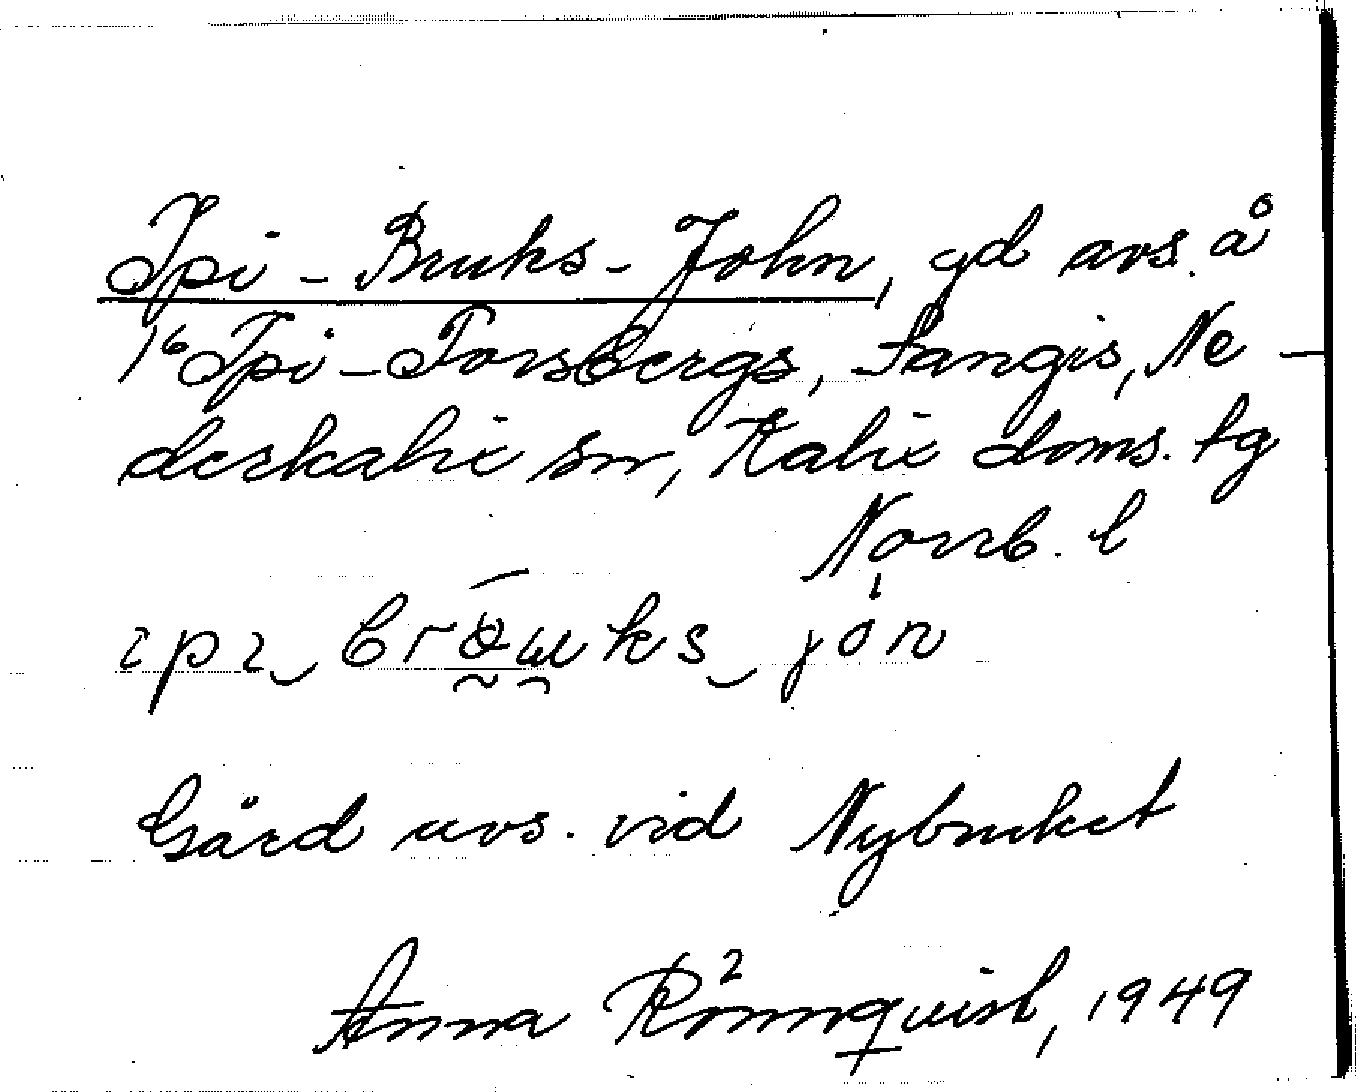 Ipi-Bruks-John, gd avs. å
1⁶ Ipi-Forsbergs, Sangis, Ne-
derkalix sn, Kalix doms. tg
Norrb. l
Gård avs. vid Nybruket
Anna Rönnquist, 1949